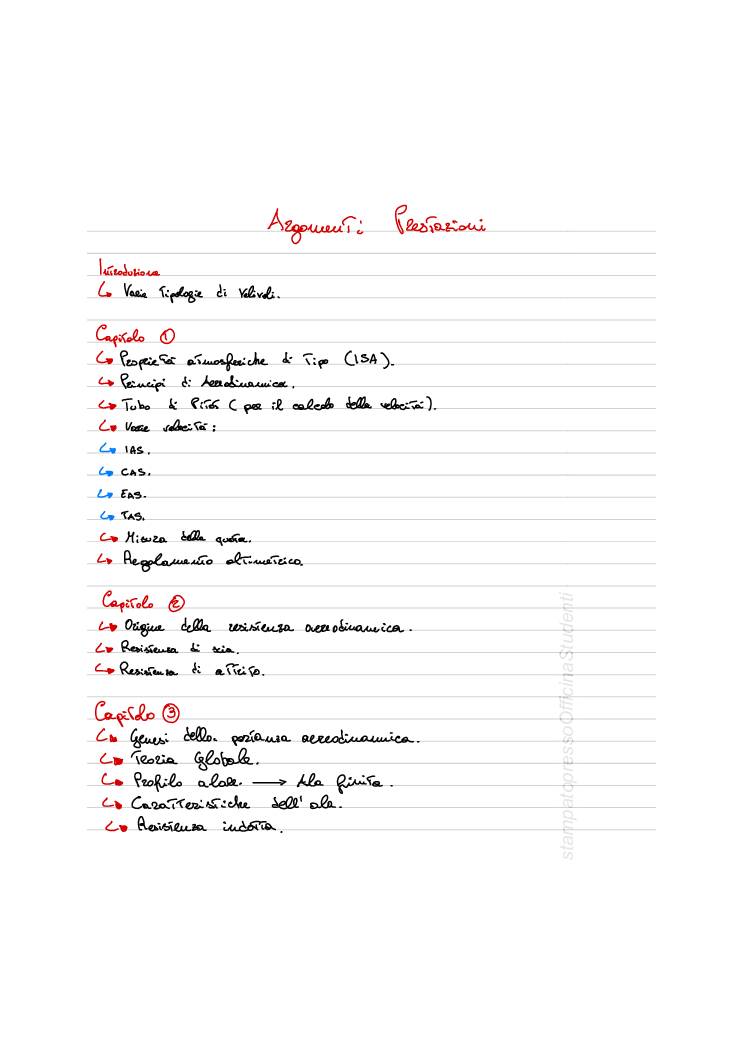 Argomenti Prestazioni
Introduzione
↳ Varie Tipologie di Velivoli.
Capitolo ①
↳ Proprietà atmosferiche di Tipo (ISA).
↳ Principi di Aerodinamica.
↳ Tubo di Pitot (per il calcolo della velocità).
↳ Varie velocità:
↳ IAS.
↳ CAS.
↳ EAS.
↳ TAS.
↳ Misura della quota.
↳ Regolamento altimetrico.
Capitolo ②
↳ Origine della resistenza aerodinamica.
↳ Resistenza di scia.
↳ Resistenza di attrito.
Capitolo ③
↳ Genesi della portanza aerodinamica.
↳ Teoria Globale.
↳ Profilo alare. ⟶ Ala finita.
↳ Caratteristiche dell'ala.
↳ Resistenza indotta.
stampatopressoOfficinaStudenti